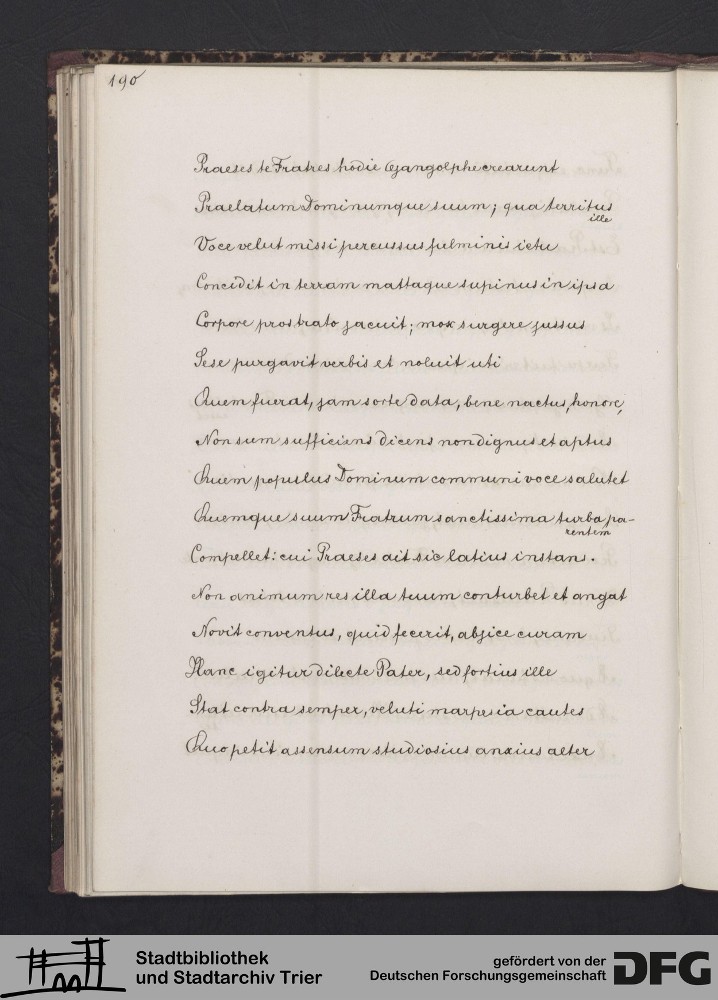 190
Praeses te Fratres hodie Gangolphe crearunt
Praelatum Dominumque suum; qua territus
ille
Voce velut missi percussus fulminis ictu
Concidit in terram mattaque supinus in ipsa
Corpore prostrato jacuit; mox surgere jussus
Sese purgavit verbis et noluit uti
Quem fuerat, jam sorte data, bene nactus, honore,
Non sum sufficiens dicens non dignus et aptus
Quem populus Dominum communi voce salutet
Quemque suum Fratrum sanctissima turba pa-
rentem
Compellet: cui Praeses ait sic latius instans.
Non animum res illa tuum conturbet et angat
Novit conventus, quid fecerit, abjice curam
Hanc igitur dilecte Pater, sed fortius ille
Stat contra semper, veluti marpesia cautes
Quo petit assensum studiosius anxius alter
Stadtbibliothek
und Stadtarchiv Trier
gefördert von der
Deutschen Forschungsgemeinschaft
DFG